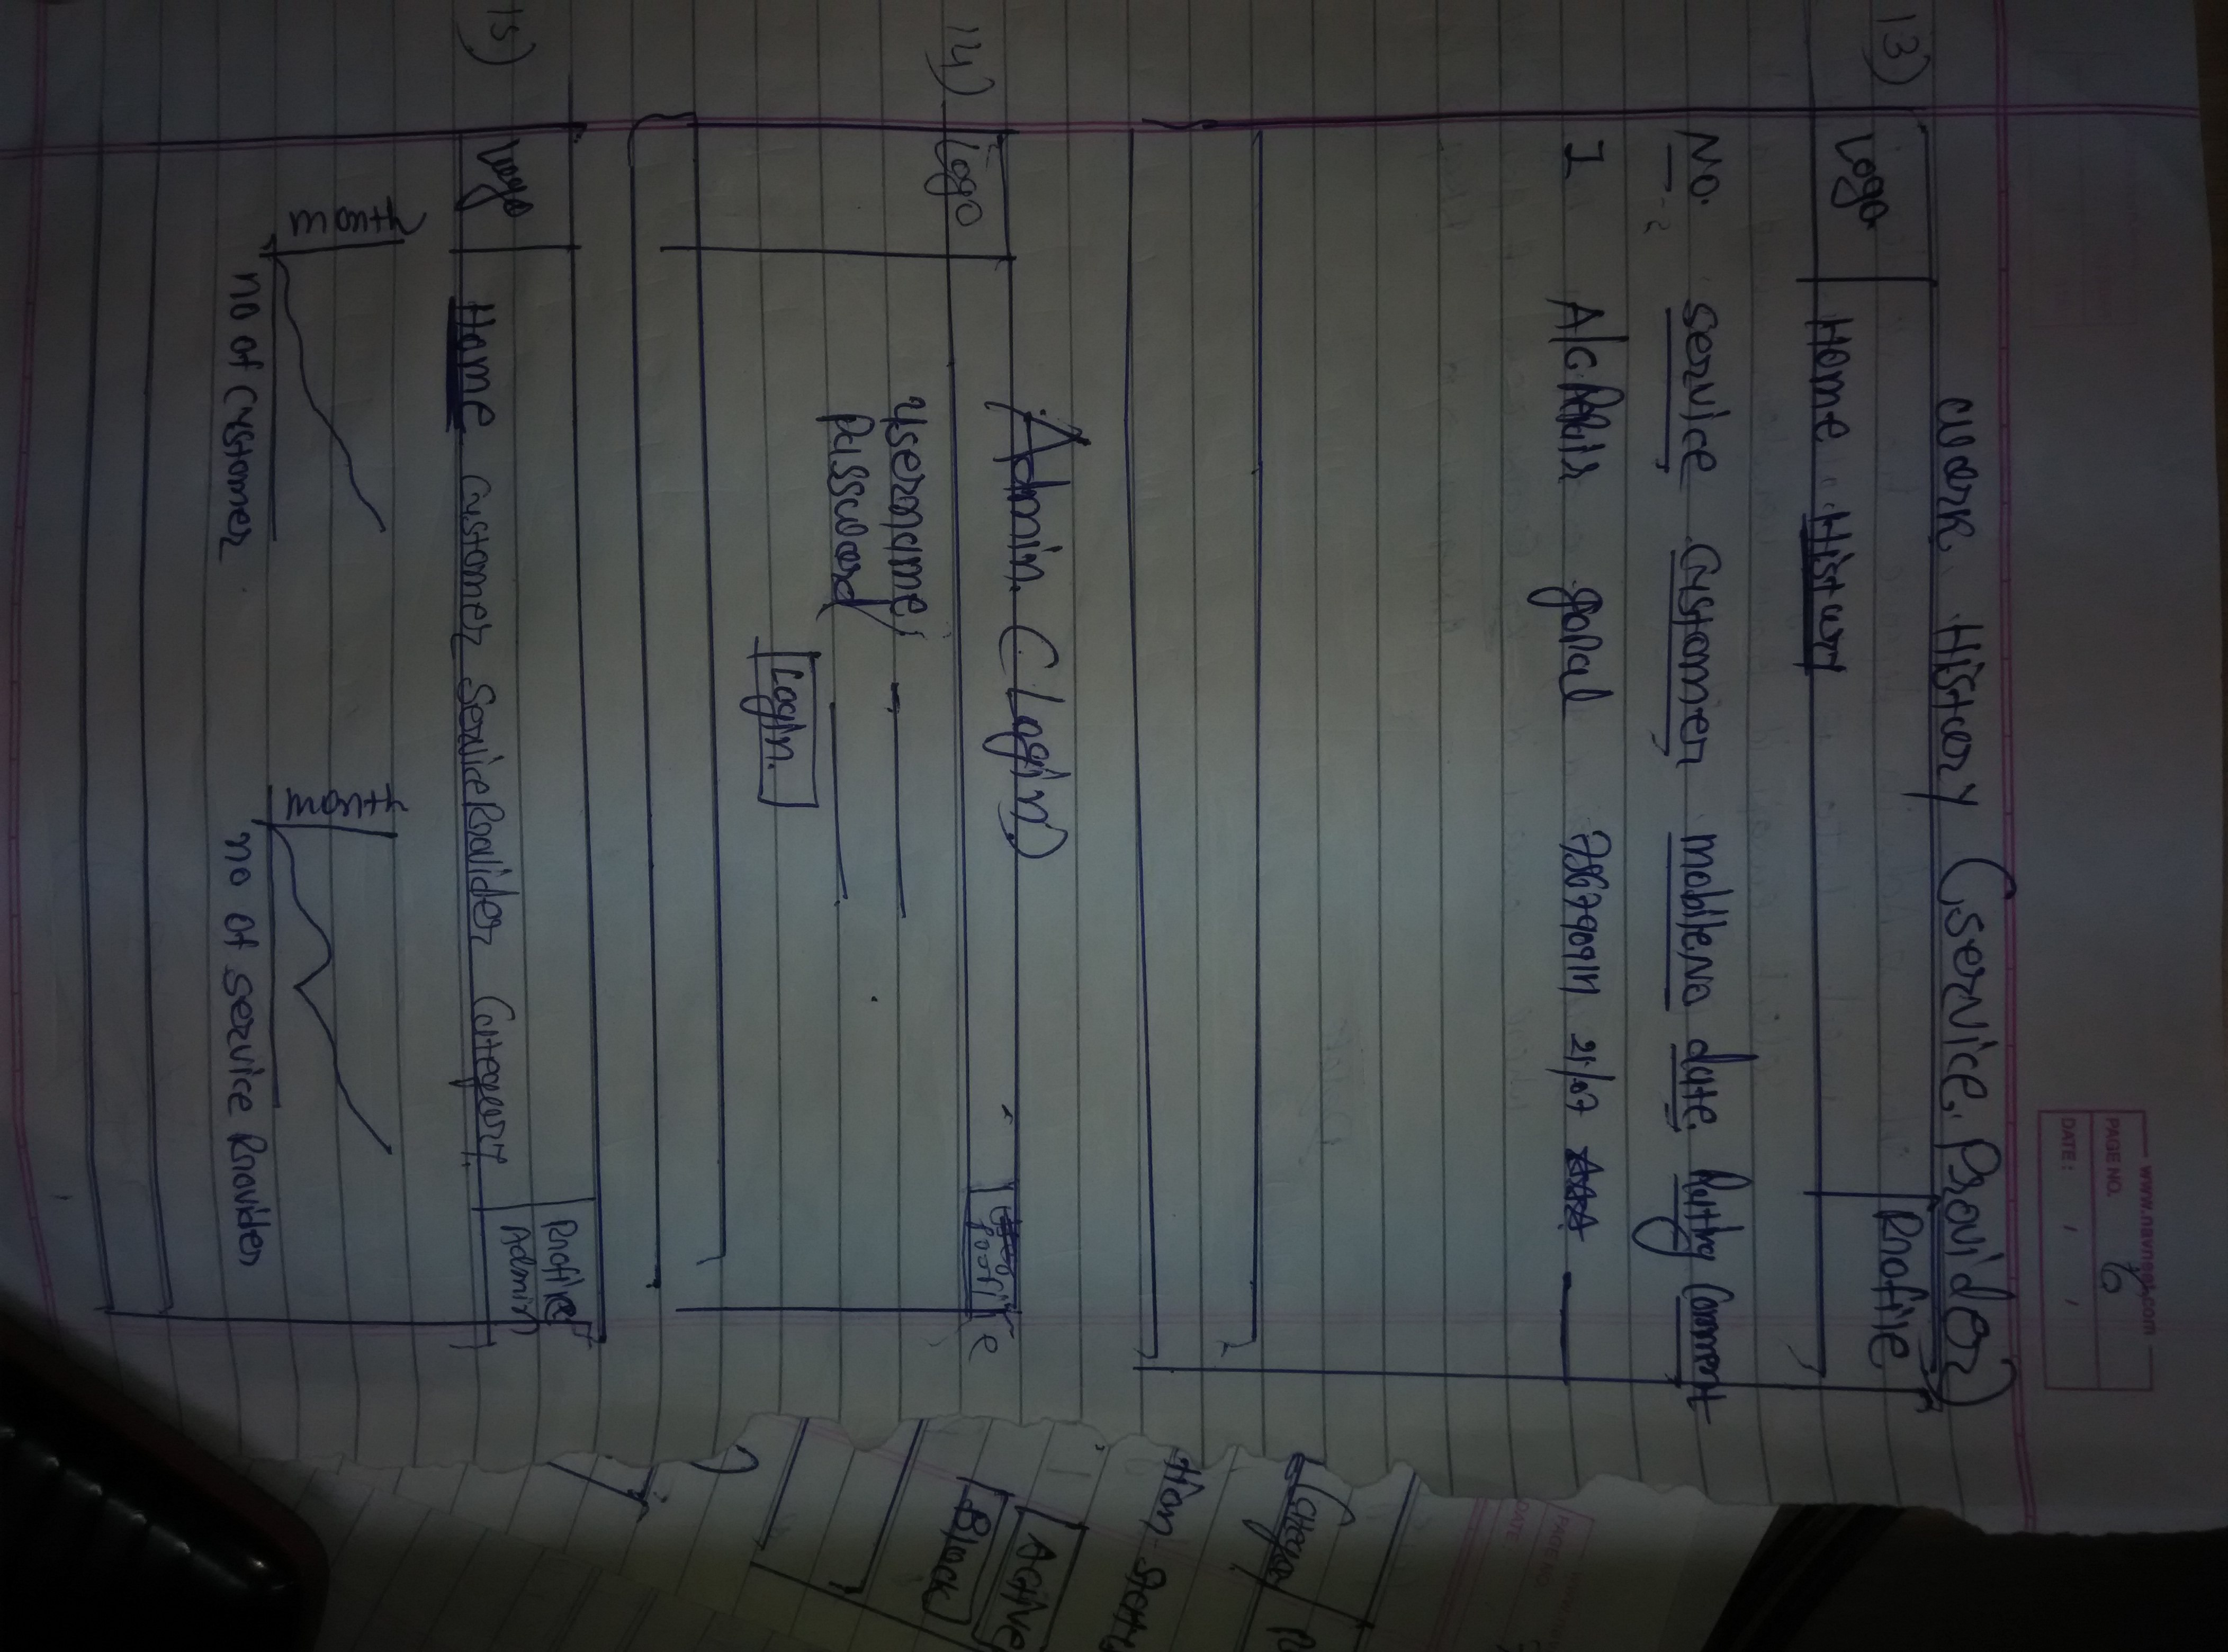 www.navneet.com
PAGE NO. 6
DATE: / /
13) work History (service Provider)
Logo Home History Profile
No. service customer mobile no date Rating Comment
1 A/C gopal 21/07
14) Admin (Login)
Logo Profile
username
password
Login.
15)
Logo Home customer service Provider Category Profile
Admin
month month
no of customer no of service Provider
PAGE NO.
DATE
ACtive
Block